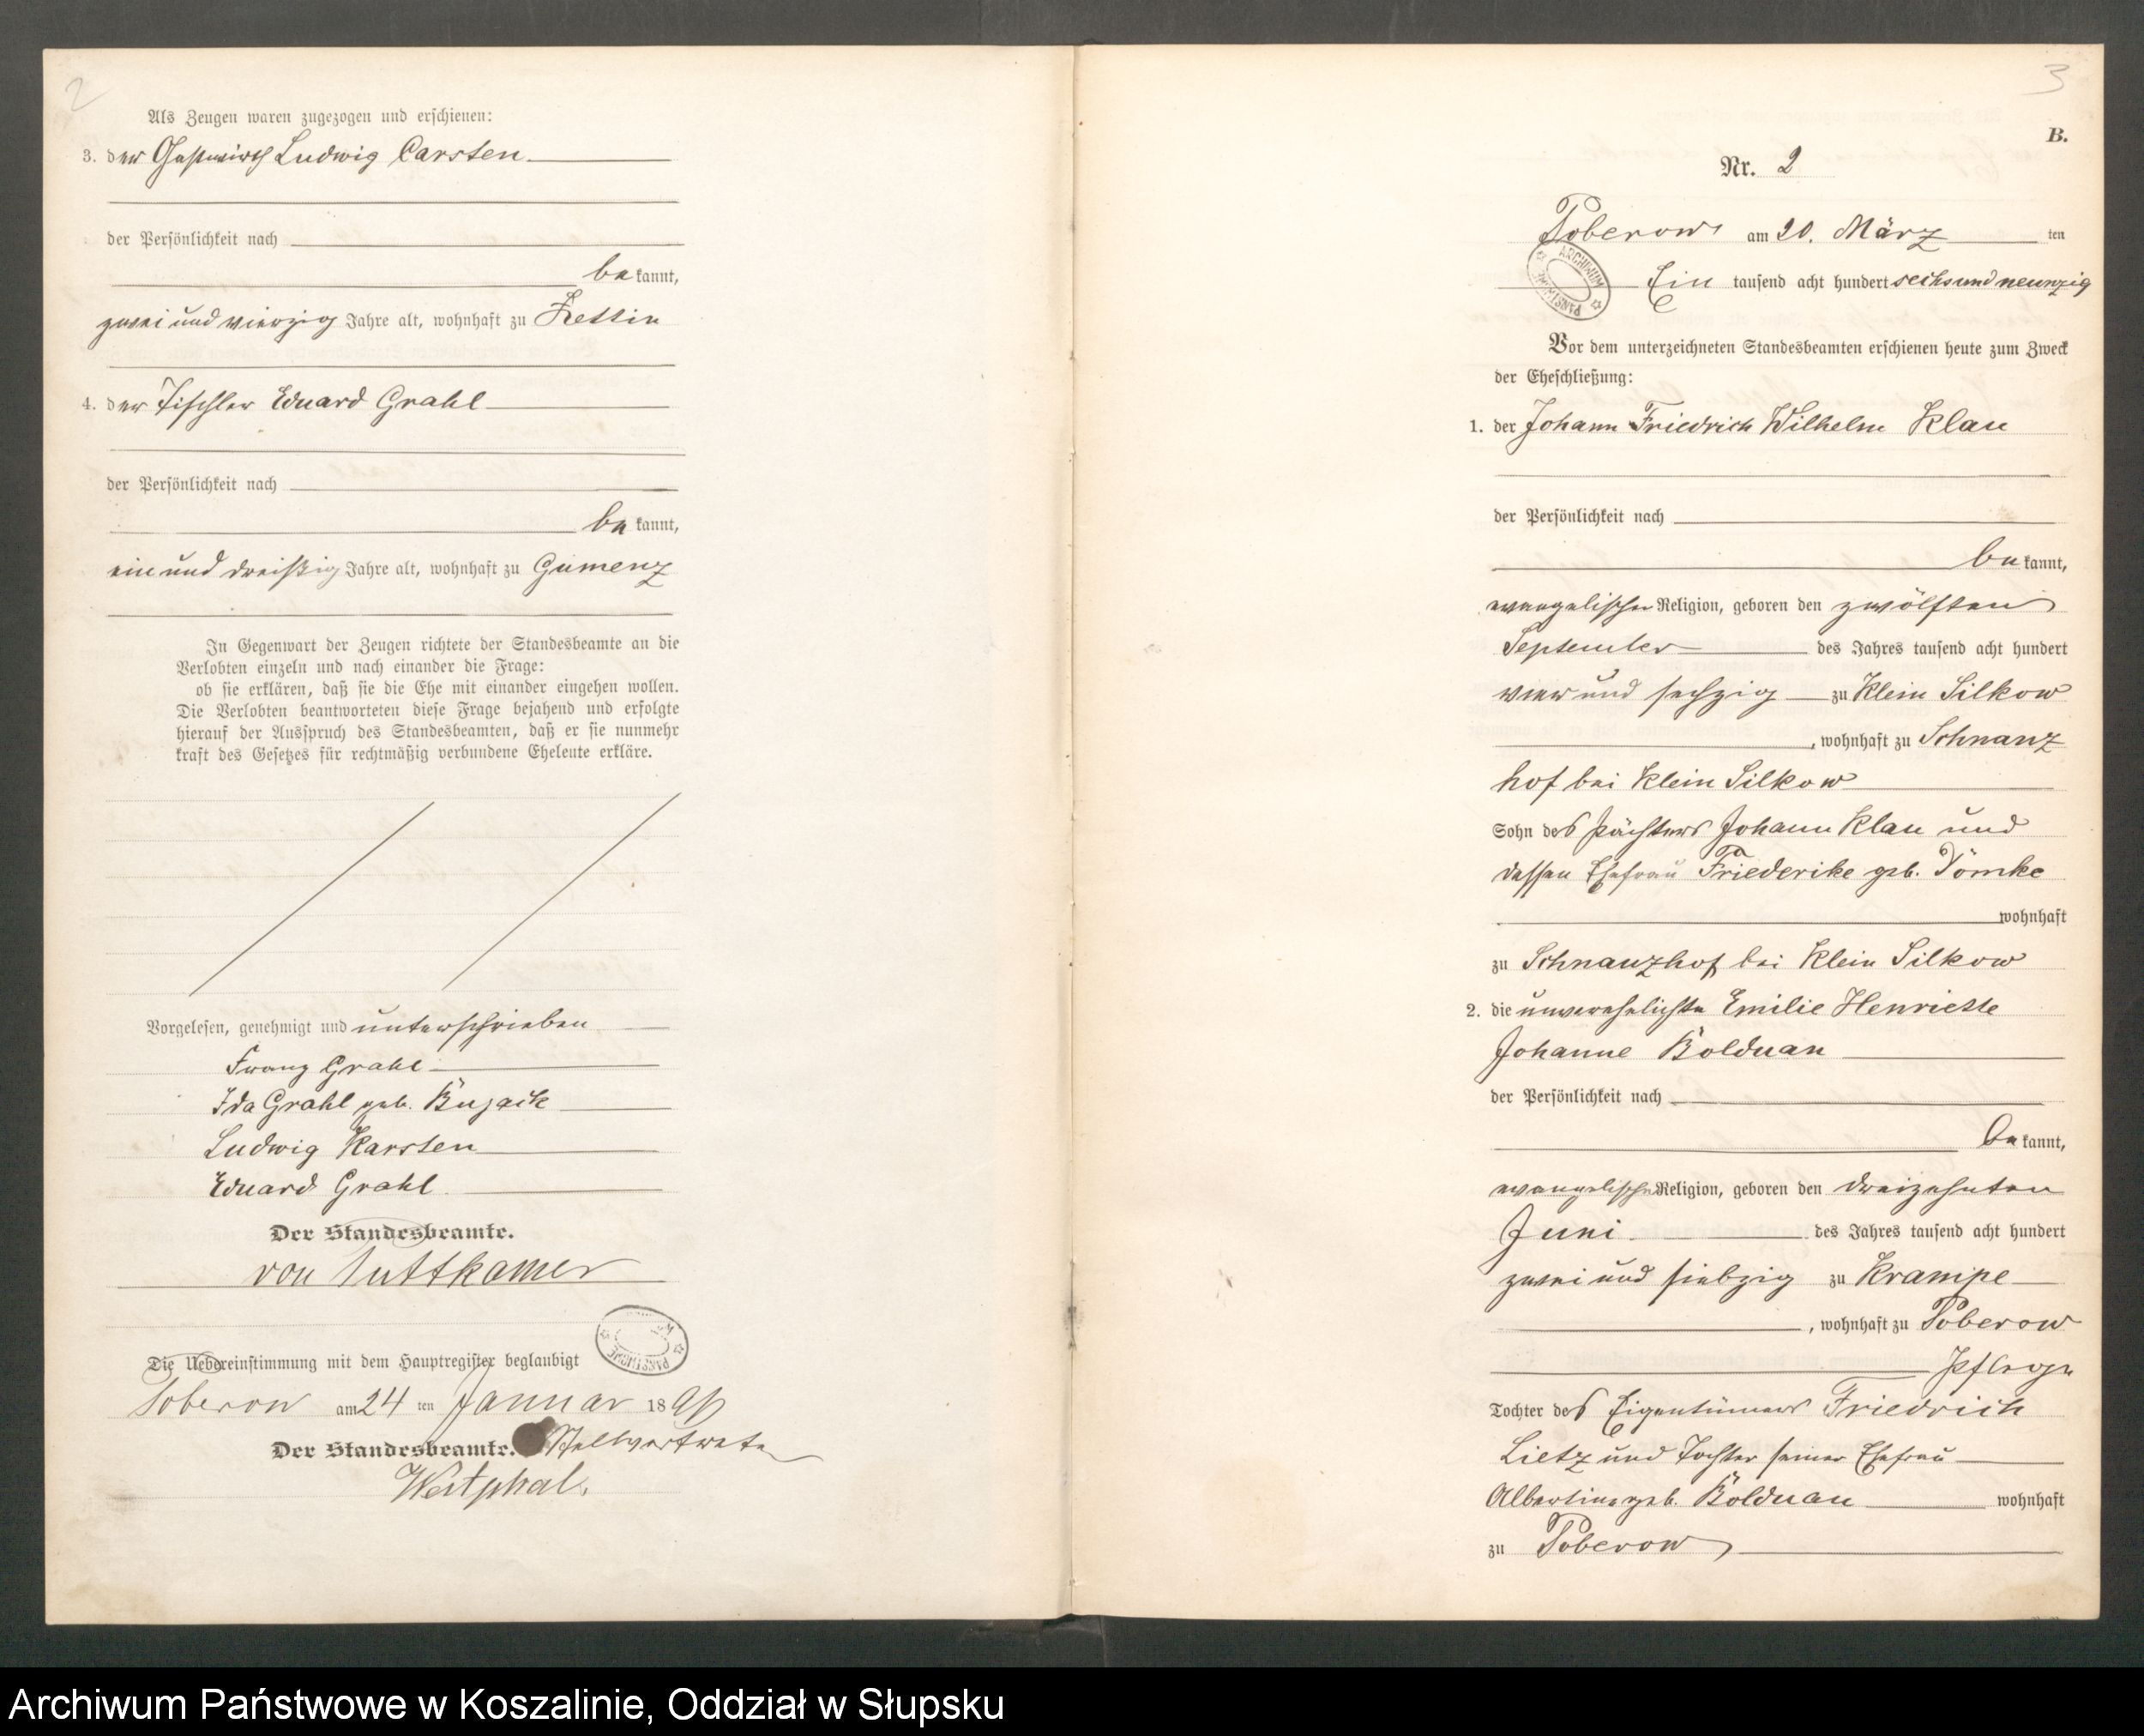 2
Als Zeugen waren zugezogen und erschienen:
3. der Gastwirth Ludwig Carsten
der Persönlichkeit nach
bekannt,
zwei und vierzig Jahre alt, wohnhaft zu Zettin
4. der Tischler Eduard Grahl
der Persönlichkeit nach
bekannt,
ein und dreißig Jahre alt, wohnhaft zu Gumenz
In Gegenwart der Zeugen richtete der Standesbeamte an die
Verlobten einzeln und nach einander die Frage:
ob sie erklären, daß sie die Ehe mit einander eingehen wollen.
Die Verlobten beantworteten diese Frage bejahend und erfolgte
hierauf der Ausspruch des Standesbeamten, daß er sie nunmehr
kraft des Gesetzes für rechtmäßig verbundene Eheleute erkläre.
Vorgelesen, genehmigt und unterschrieben
Franz Grahl
Ida Grahl geb. Bujack
Ludwig Karsten
Eduard Grahl
Der Standesbeamte.
von Puttkamer
Die Uebereinstimmung mit dem Hauptregister beglaubigt
Poberow am 24 ten Januar 189
Der Standesbeamte. Stellvertreter
Westphal.
3
B.
Nr. 2
Poberow am 20. März ten
Ein tausend acht hundert sechsundneunzig
ARCHIWUM PAŃSTWOWE
Vor dem unterzeichneten Standesbeamten erschienen heute zum Zweck
der Eheschließung:
1. der Johann Friedrich Wilhelm Klau
der Persönlichkeit nach
bekannt,
evangelischer Religion, geboren den zwölften
September des Jahres tausend acht hundert
vier und sechzig zu Klein Silkow
, wohnhaft zu Schnanz
hof bei Klein Silkow
Sohn des Pächters Johann Klau und
dessen Ehefrau Friederike geb. Dömke
wohnhaft
zu Schnanzhof bei Klein Silkow
2. die unverehelichte Emilie Henriette
Johanne Bolduan
der Persönlichkeit nach
bekannt,
evangelischer Religion, geboren den dreizehnten
Juni des Jahres tausend acht hundert
zwei und siebzig zu Krampe
, wohnhaft zu Poberow
Pflege
Tochter des Eigentümers Friedrich
Lietz und Tochter seiner Ehefrau
Albertine geb. Bolduan wohnhaft
zu Poberow
Archiwum Państwowe w Koszalinie, Oddział w Słupsku